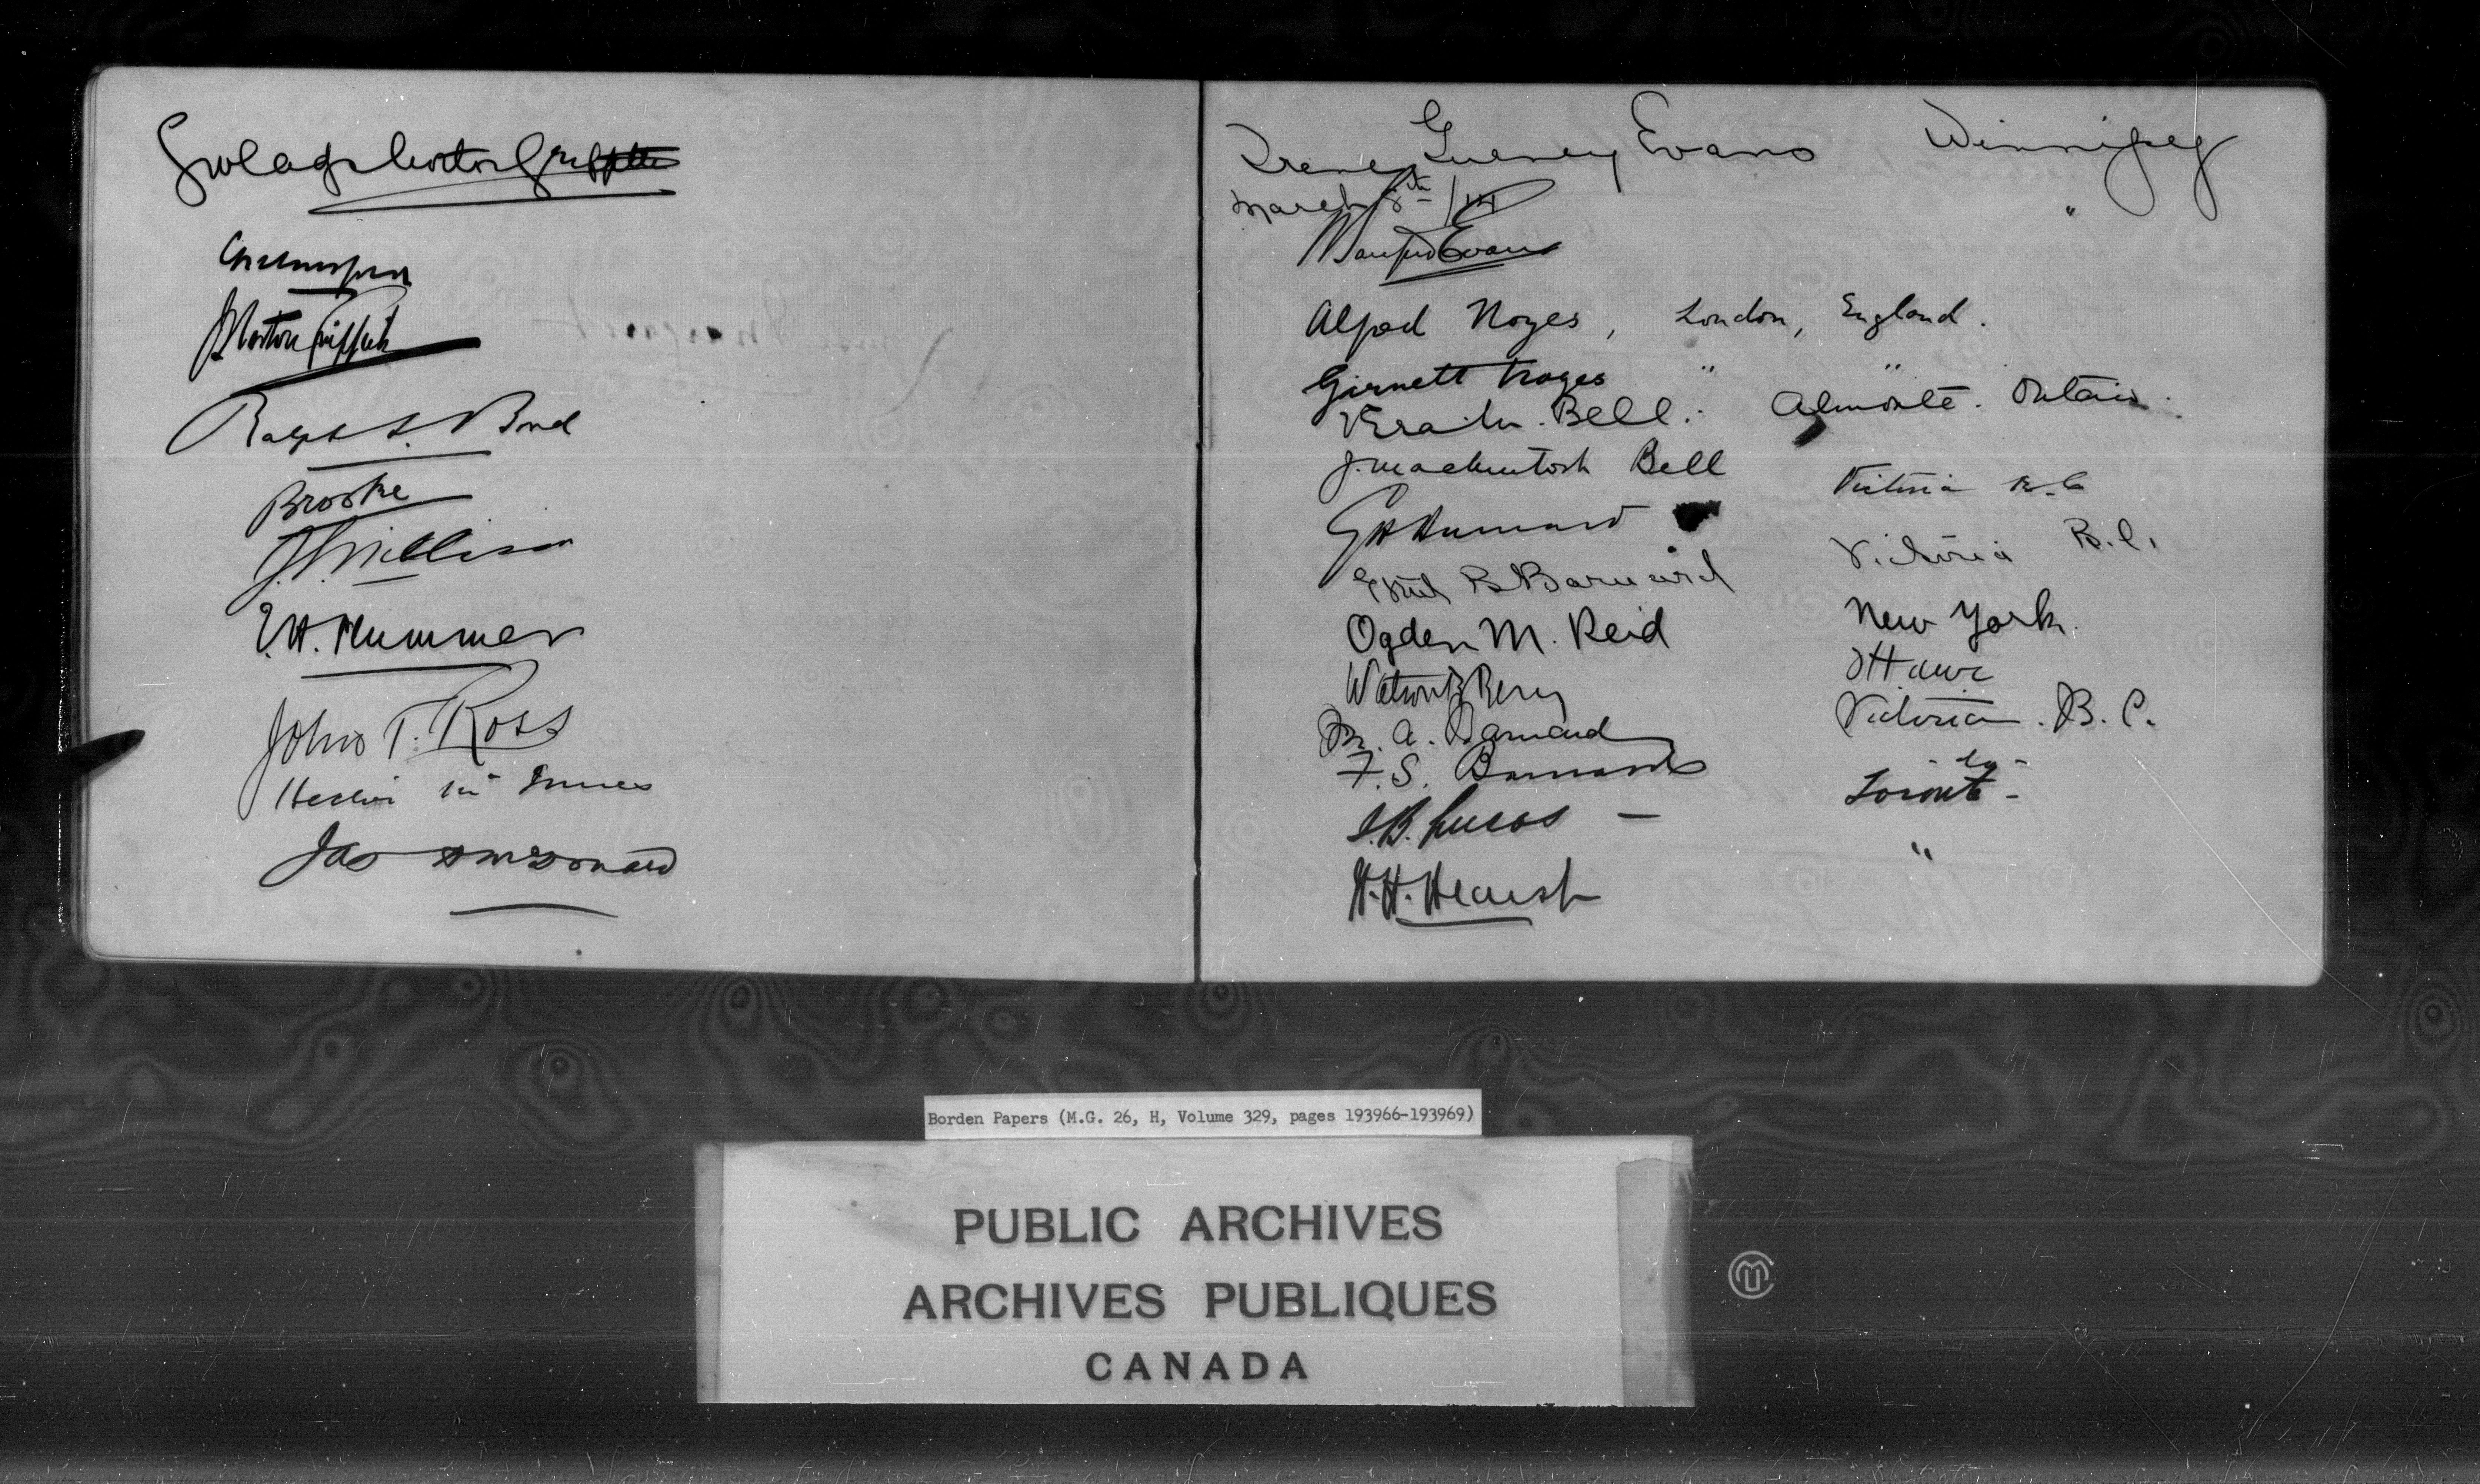 Gwladys Norton Griffiths
J Norton Griffiths
Ralph L. Bond
Brooke
J.S. Willison
E.H. Plummer
John T. Ross
Hector Mc Innes
Jas
Irene Gurney Evans Winnipeg
March 8th/14
Sanford Evans "
Alfred Noyes, London, England.
Garnett Noyes " "
Vera M. Bell. Almonte. Ontario.
J. Mackintosh Bell
G H Barnard Victoria B.C
Ethel B Barnard Victoria B.C.
Ogden M. Reid New York.
Ottawa
M. A. Barnard Victoria. B.C.
F. S. Barnard - do -
I.B. Lucas - Toronto -
W.H. Hearst "
Borden Papers (M.G. 26, H, Volume 329, pages 193966-193969)
PUBLIC ARCHIVES
ARCHIVES PUBLIQUES
CANADA